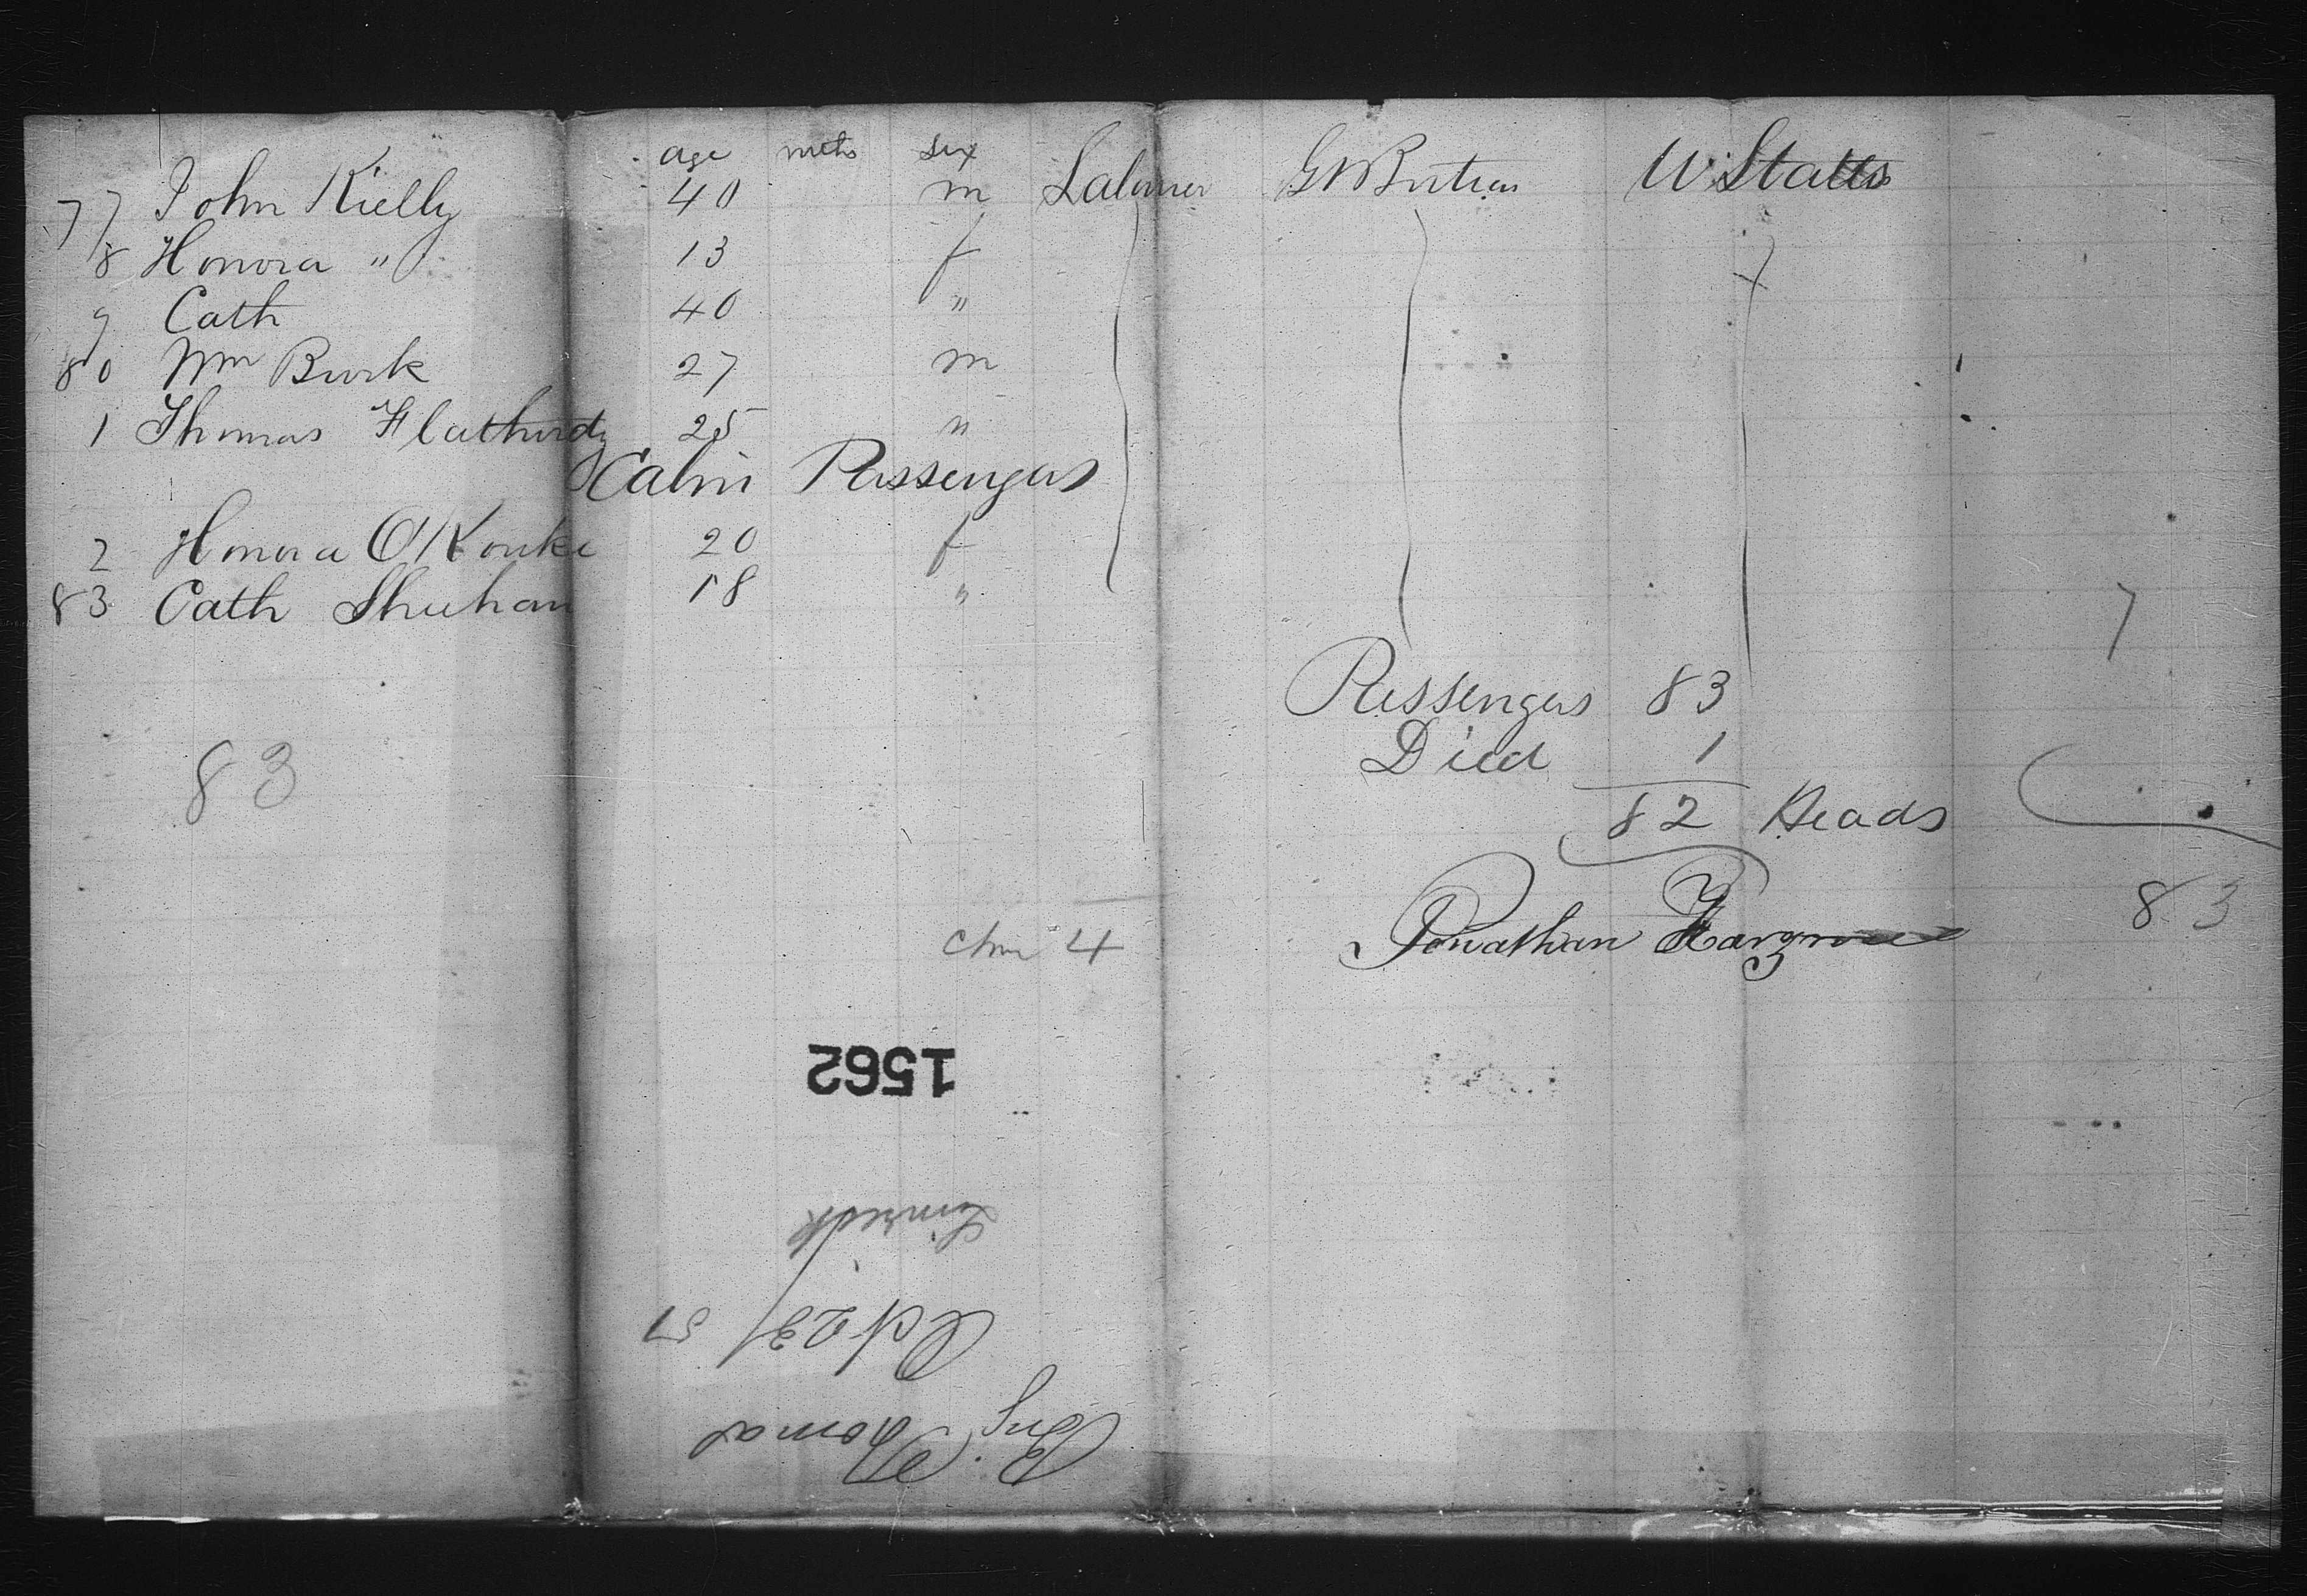 age mths sex
77 John Kielly 40 m Laborer G W Britain U States
8 Honora " 13 f
9 Cath 40 "
80 Wm Burk 27 m
1 Thomas Flatherdy 25 "
Cabin Passengers
2 Honora O'Rourke 20 f
83 Cath Shuhan 18 "
7
Passengers 83
Died 1
82 Heads
83
83
Jonathan Hargrave
chn 4
1562
Limerick
Oct 23/51
Brig Thomas